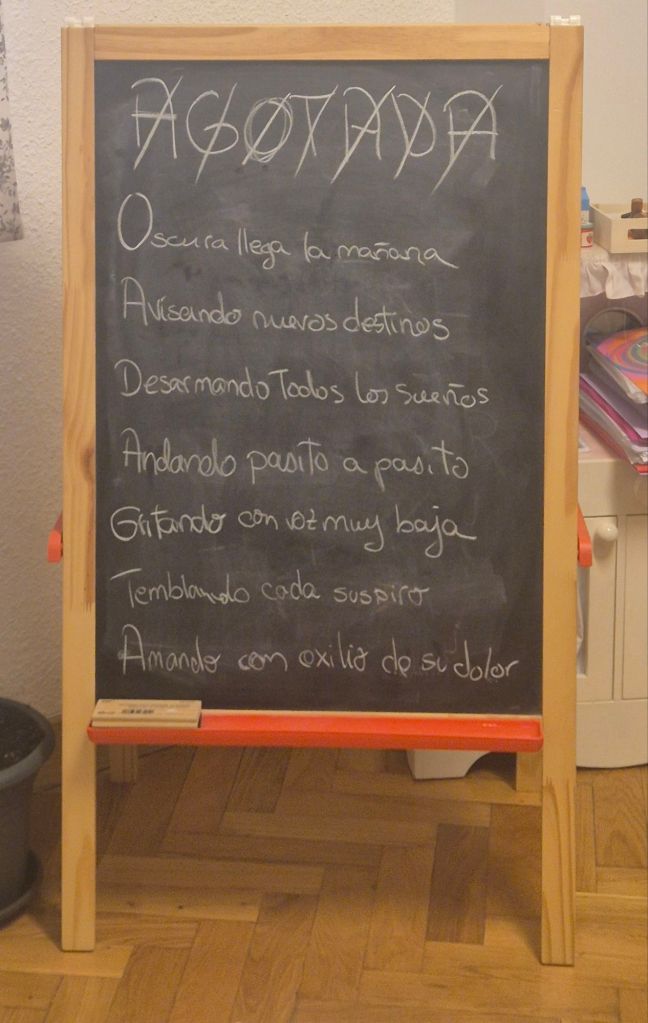 AGOTADA
Oscura llega la mañana
Avisando nuevos destinos
Desarmando Todos los sueños
Andando pasito a pasito
Gritando con voz muy baja
Temblando cada suspiro
Amando con exilio de su dolor